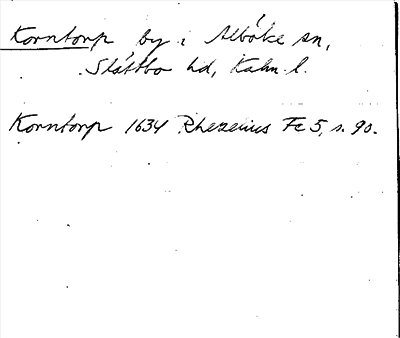 Korntorp by i Alböke sn,
Slättbo hd, Kalm. l.
Korntorp 1634 Rhezelius Fc 5, s. 90.